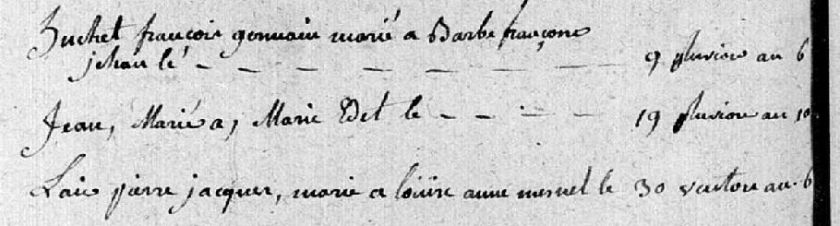 Buchet francois germain marié a Barbe françoise
jehan le - - - - - - - 9 pluviose an 6
Jean, Marié a, Marie Edet le - - - - 19 pluviose an 10
pierre jacques, marie a louise anne mesnel le 30 ventose an 6